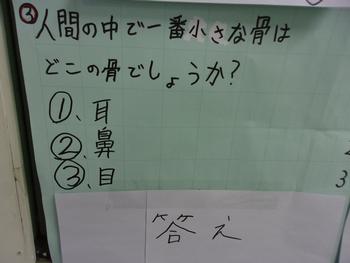 ③人間の中で一番小さな骨は
どこの骨でしょうか?
①、耳
②、鼻
③、目
3
答え